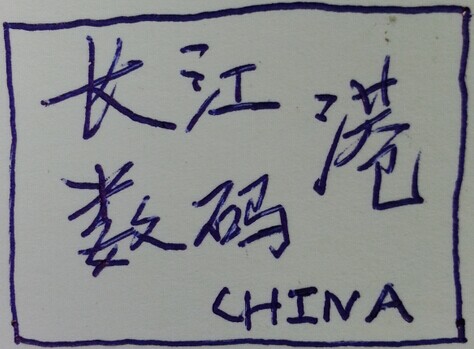 长江
数码港
CHINA